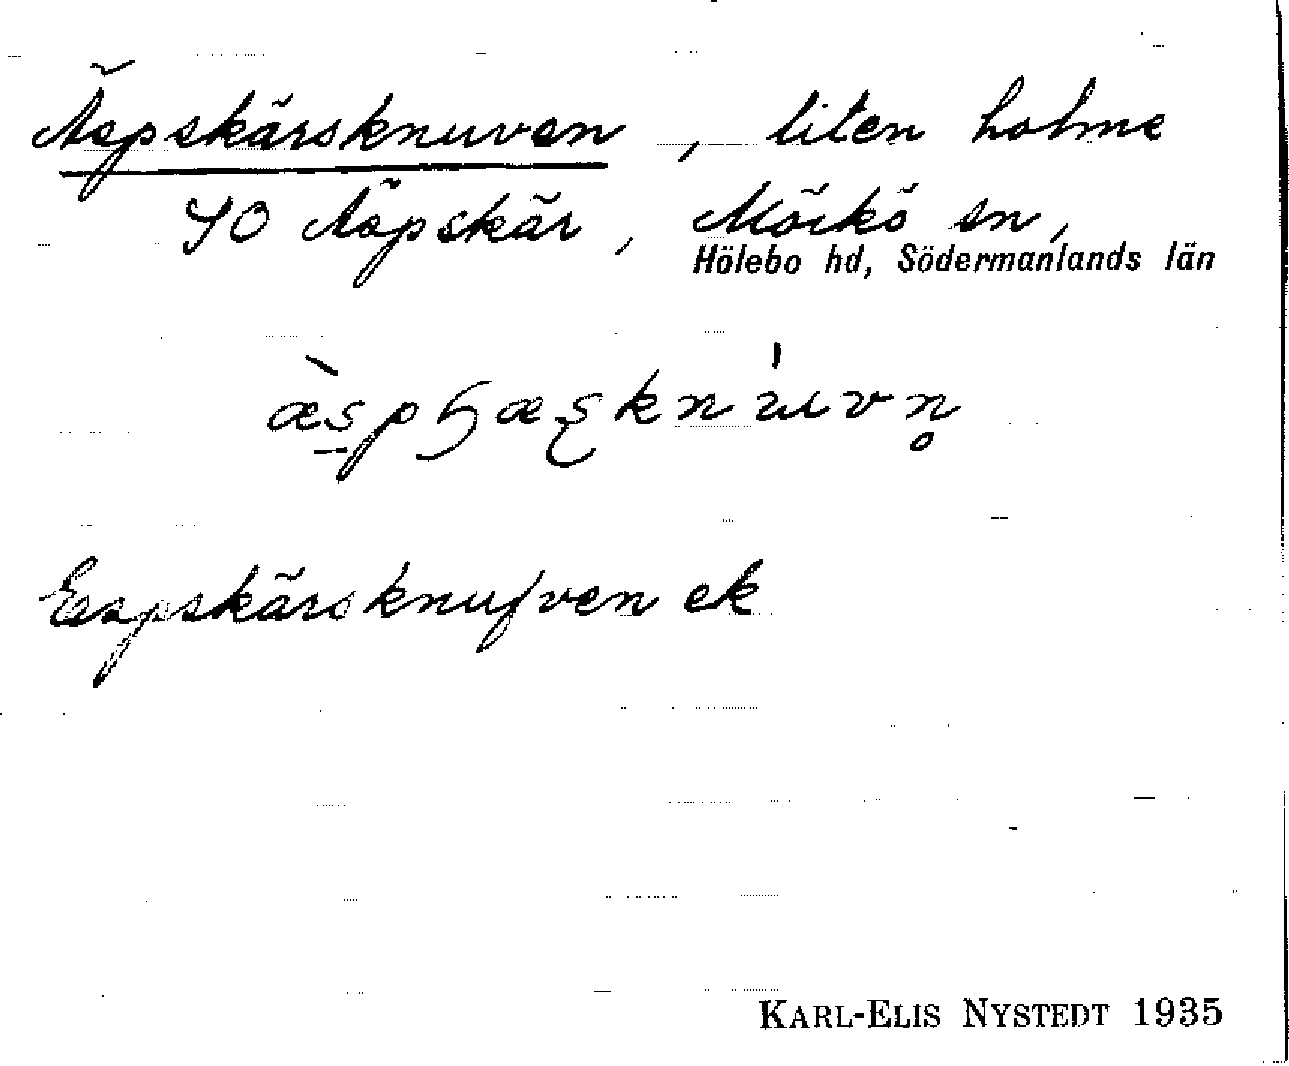 Äspskärsknuven, liten holme
SO Äspskär, Mörkö sn,
Hölebo hd, Södermanlands län
Espskärsknufven ek
KARL-ELIS NYSTEDT 1935